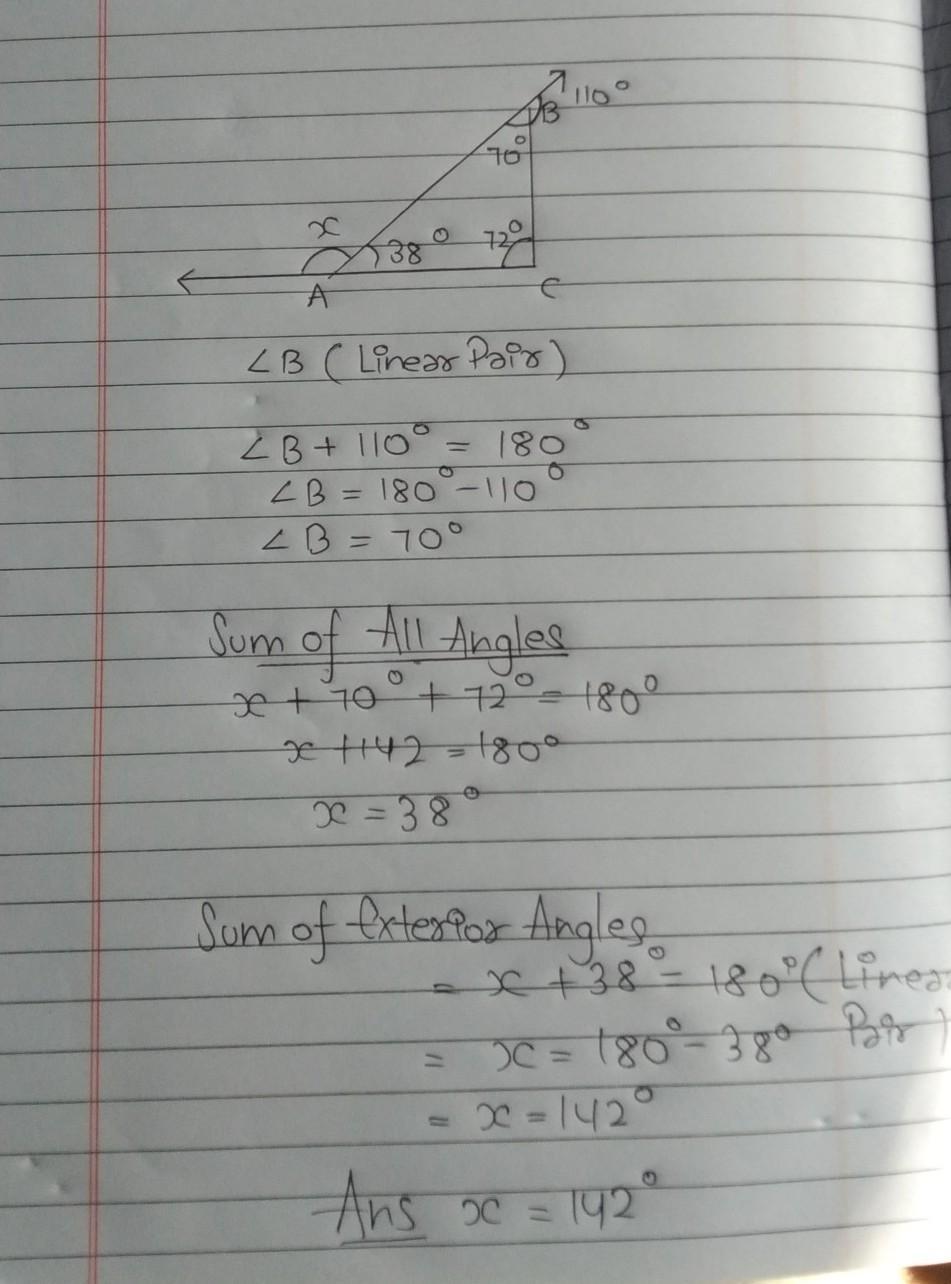 B 110°
70°
x 38° 72°
A C
∠B (Linear Pair)
∠B + 110° = 180°
∠B = 180° - 110°
∠B = 70°
Sum of All Angles
x + 70° + 72° = 180°
x + 142 = 180°
x = 38°
Sum of Exterior Angles
= x + 38° = 180° (Linear
= x = 180° - 38° Pair)
= x = 142°
Ans x = 142°